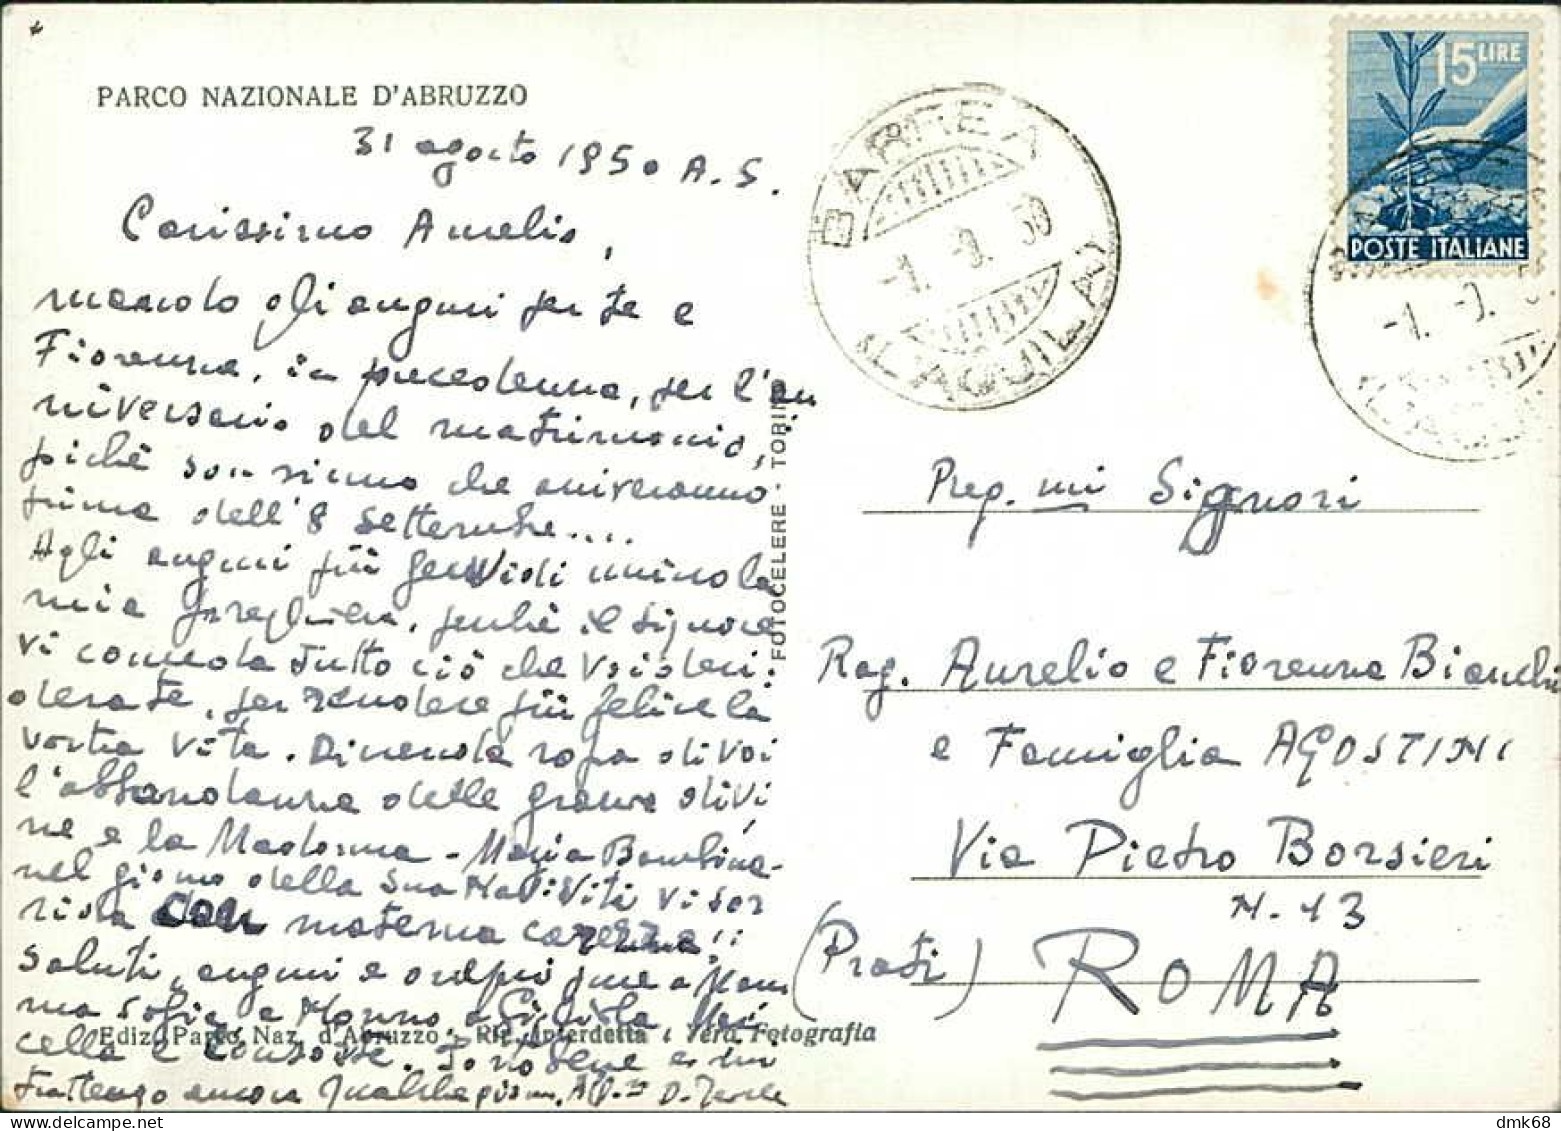 PARCO NAZIONALE D'ABRUZZO
31 agosto 1950 A.S.
Carissimo Amelio,
mando gli auguri per te e
Fiorenna, in precedenna, per l'an
niversario del matrimonio,
poiché non siamo che arriveranno
prima dell'8 settembre....
Agli auguri più fervidi unisco la
mia preghiera, perché il Signore
vi conceda tutto ciò che voi desi-
derate, per rendere più felice la
vostra vita. Discenda sopra di voi
l'abbondanna delle grazie divi
ne e la Madonna - Maria Bambina -
nel giorno della sua Natività vi sor
rida con materna carezza!!
Saluti, auguri e anche a Mam
ma Sofia e Nonno
cella e Sto bene e mi
trattengo ancora qualche giorno. Aff.mo D.
FOTOCELERE TORINO
Ediz. Parco Naz. d'Abruzzo - Rip. interdetta - Vera Fotografia
BARREA
-1. -9. 50
(L'AQUILA)
15 LIRE
POSTE ITALIANE
-1. -9.
Preg.mi Signori
Rag. Aurelio e Fiorenna Bianchi
e Famiglia AGOSTINI
Via Pietro Borsieri
N. 13
(Prati) ROMA
www.delcampe.net
dmk68